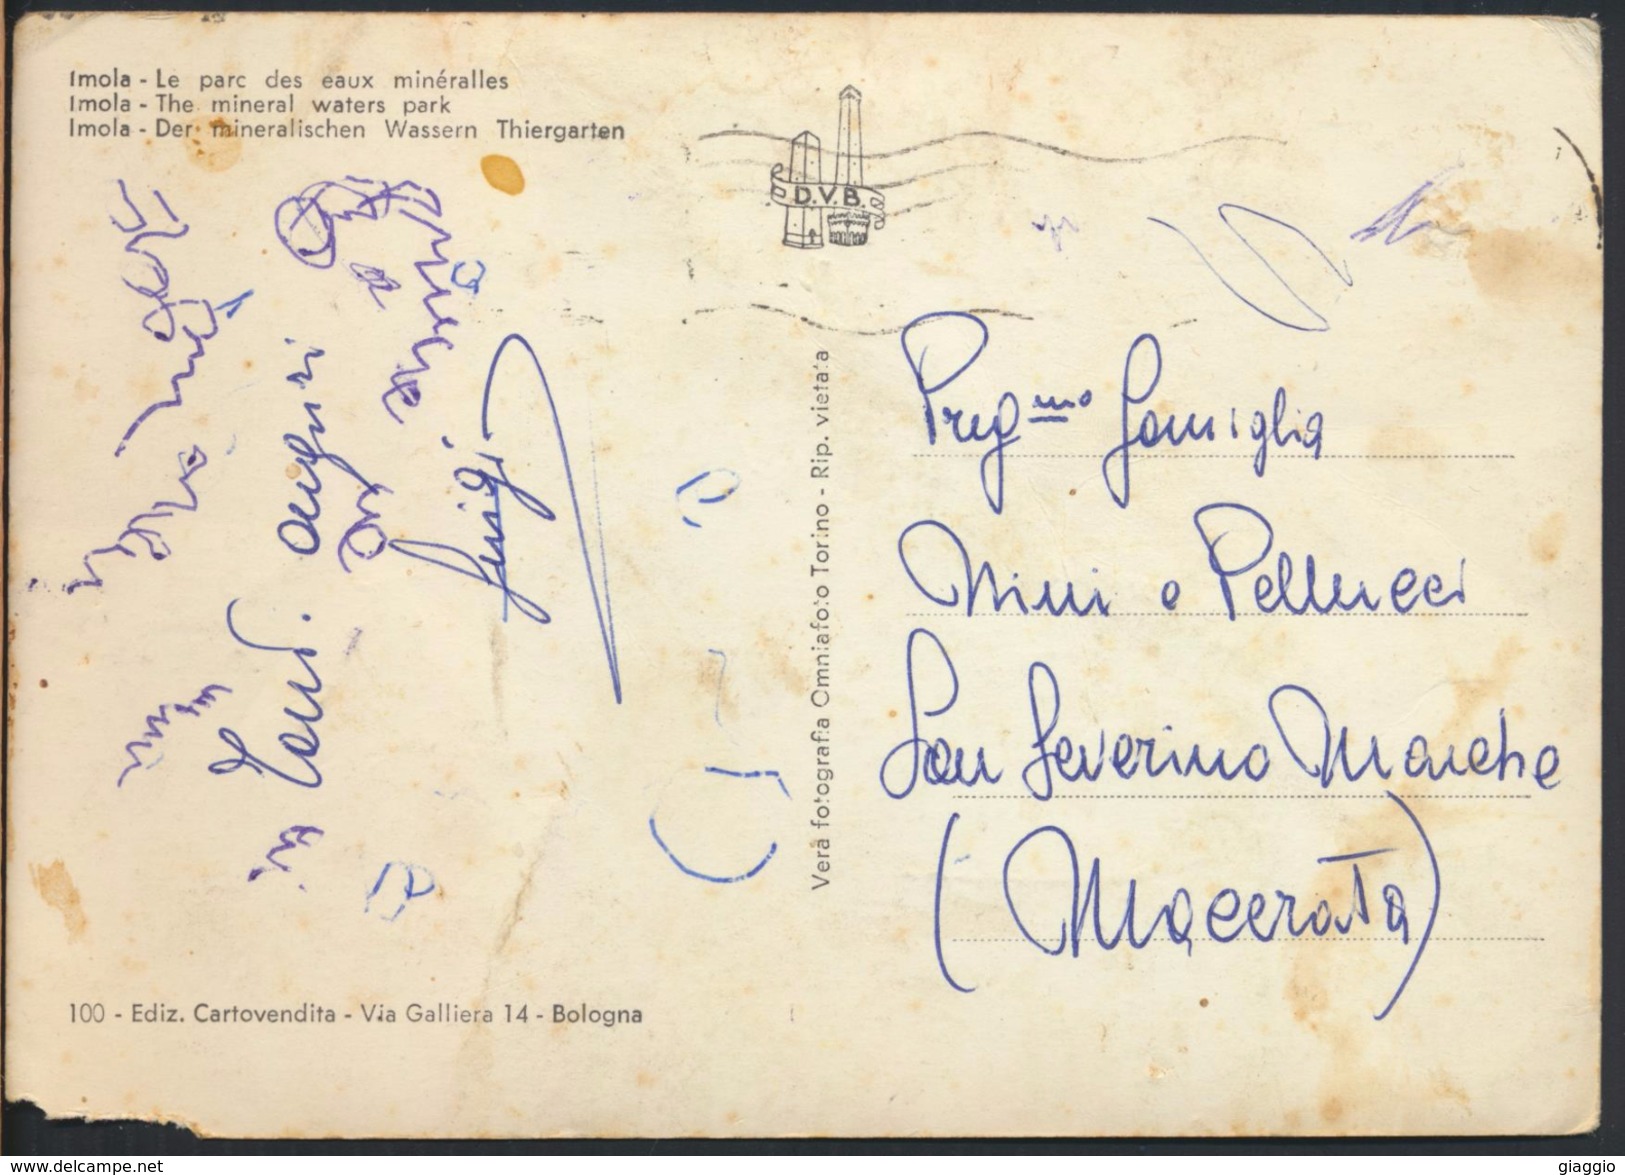 Imola - Le parc des eaux minéralles
Imola - The mineral waters park
Imola - Der mineralischen Wassern Thiergarten
D.V.B.
auguri
Luigi
Vera fotografia Omniafoto Torino - Rip. vietata
Preg.mo Famiglia
Nini e Pellucci
San Severino Marche
(Macerata)
100 - Ediz. Cartovendita - Via Galliera 14 - Bologna
www.delcampe.net
giaggio